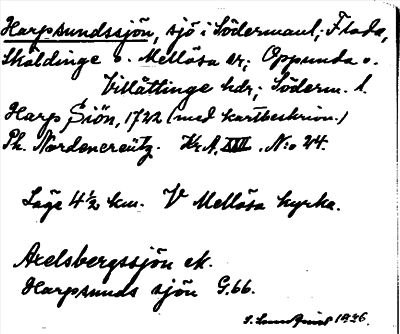 Harpsundssjön, sjö i Södermanl; Floda,
Sköldinge o. Mellösa sr; Oppunda o.
Villåttinge hdr; Söderm. l.
Harp Siön, 1722 (med kartbeskrivn.)
Ph. Nordencreütz. Kr.A. XIII. N:o 24.
Läge 4½ km. V Mellösa kyrka.
Axelsbergssjön ek.
Harpsunds sjön G.66.
1926